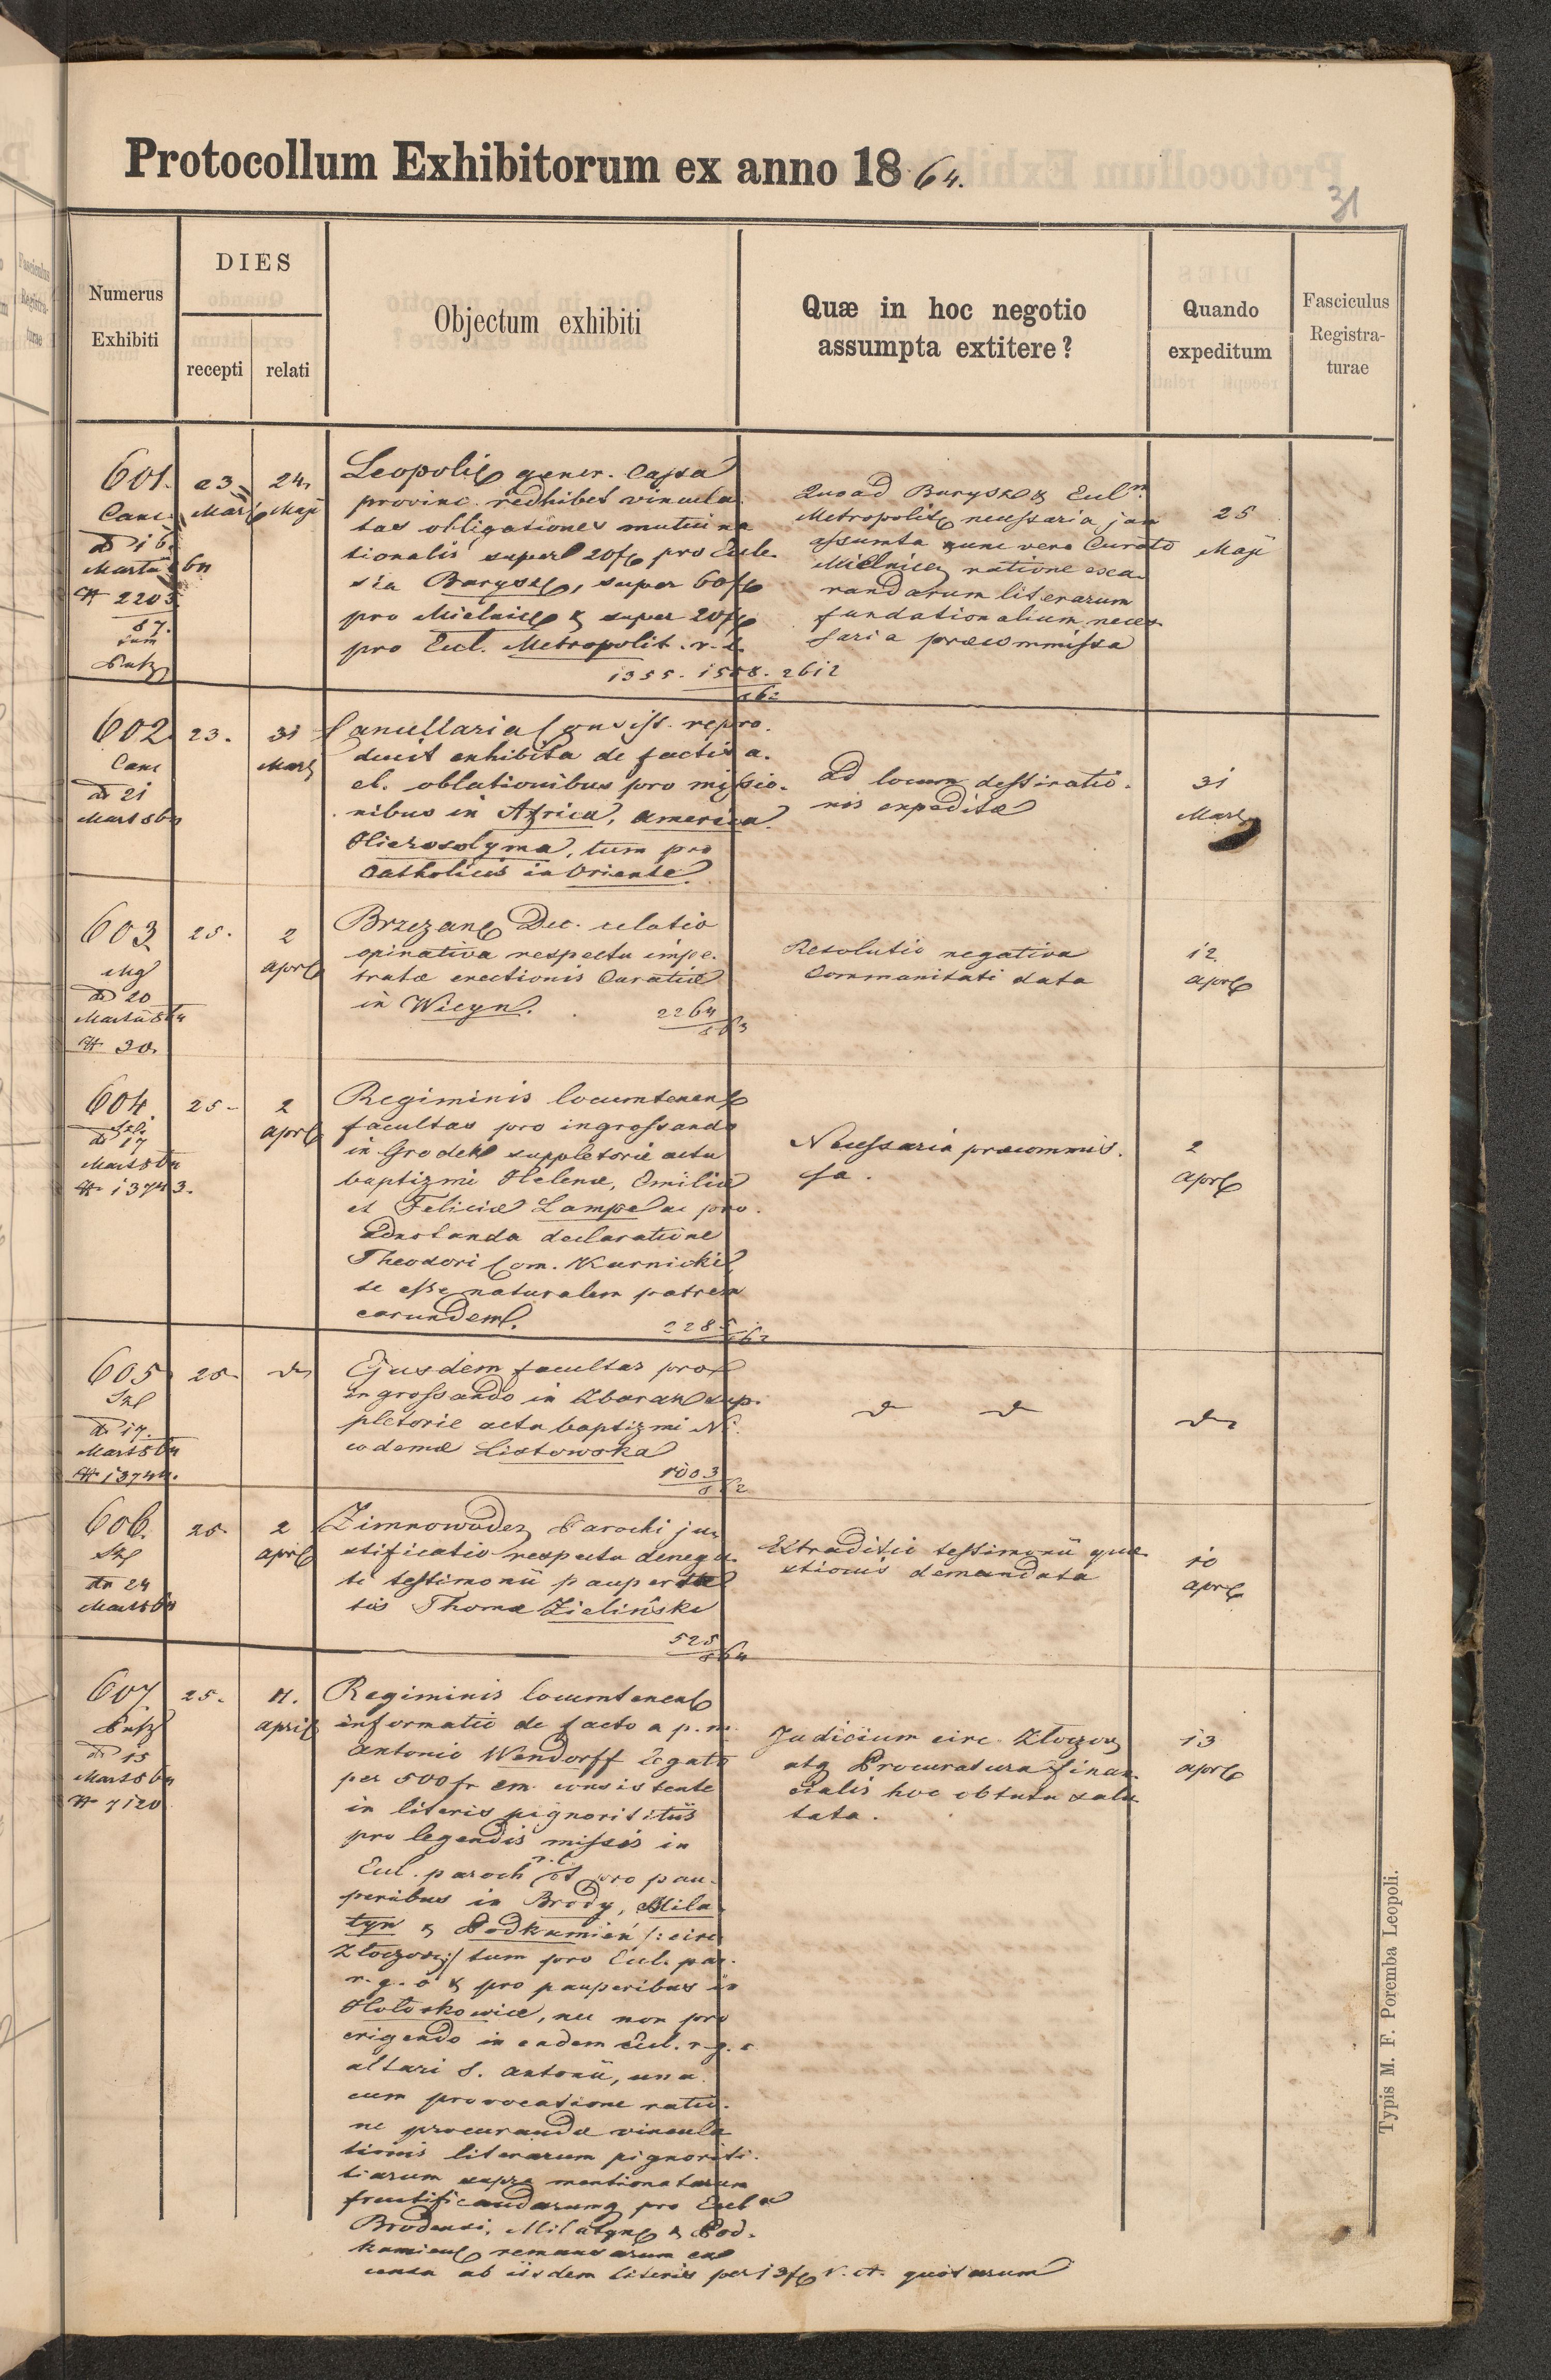 Protocollum Exhibitorum ex anno 1864.
31
Numerus
Exhibiti
DIES
recepti
relati
Objectum exhibiti
Quæ in hoc negotio
assumpta extitere?
Quando
expeditum
Fasciculus
Registra-
turae
601.
Canc
16
Martii 64
2203
87.
23
24
Maji
Leopoli gener. Cassa
provinc. redhibet vincula
tas obligationes mutui na
tionalis super 20f pro Eccle
sia Barysz, super 60f
pro Mielnice & super 20f
pro Eccl. Metropolit. r. l.
1355. 1558. 2612
862
Quoad Barysz & Eccl.
Metropolit necessaria jam
assumta nunc vero Curato
Mielnice ratione exa
randarum literarum
fundationalium neces
saria præcommissa
25
Maji
602
Canc
dto 21
Mart 864
23.
31
Mart
Cancellaria Consist. repro.
ducit exhibita de factis a.
el. oblationibus pro missio.
nibus in Africa, America
Hierosolyma, tum pro
Catholicis in Oriente
ad locum destinatio.
nis expedita
31
Mart
603
20
Martii 864
30.
25.
2
April
Brzezan Dec. relatio
opinativa respectu impe.
tratæ erectionis Curatiæ
in Wicyn.
2264
863
Resolutio negativa
Communitati data
12
April
604
17
Mart 864
13743.
25
2
April
Regiminis locumtenent
facultas pro ingrossando
in Grodek suppletorie actu
baptizmi Helenæ, Emiliæ
et Feliciæ Lampe ac pro.
adnotanda declaratione
Theodori Com. Karnicki
se esse naturalem patrem
earundem.
2285
862
Necessaria præcommis.
sa.
2
April
605
17.
Mart 864
13744.
25
dto
Ejusdem facultas pro
ingrossando in Zbaraz sup.
pletorie actu baptizmi Ni.
codemæ Listowska
1003
862
dto dto
dto
606.
24
Mart 864
25
2
April
Zimnowodez Parochi ju
stificatio respectu denega
ti testimonii pauperta
tis Thomæ Zieliński
525
864
Extraditio testimonii quæ
stionis demandata
10
April
607
15
Mart 864
7120
25.
11.
April
Regiminis locumtenent
informatio de facto a p. m.
Antonio Wendorff legato
per 500 fr em. consistente
in literis pignorititiis
pro legendis missis in
Eccl. paroch r. l. et pro pau
peribus in Brody, Mila
tyn & Podkamień /: circ
Złoczov:/ tum pro Eccl. par.
r. g. c. & pro pauperibus in
Hołoskowice, nec non pro
erigendo in eadem Eccl. r. g. c
altari S. Antonii, una
cum provocatione ratio.
ne procurandæ vincula
tionis literarum pignoriti.
tiarum supra mentionatarum
fructificandarumq pro Eccl
Brodensi, Milatyn & Pod.
kamien remansarum
ab iisdem literis per 13f v. a. quotarum
Judicium circ. Złoczov
atq Procuratura finan
cialis hoc obtutu salu
tata.
13
April
Typis M. F. Poremba Leopoli.